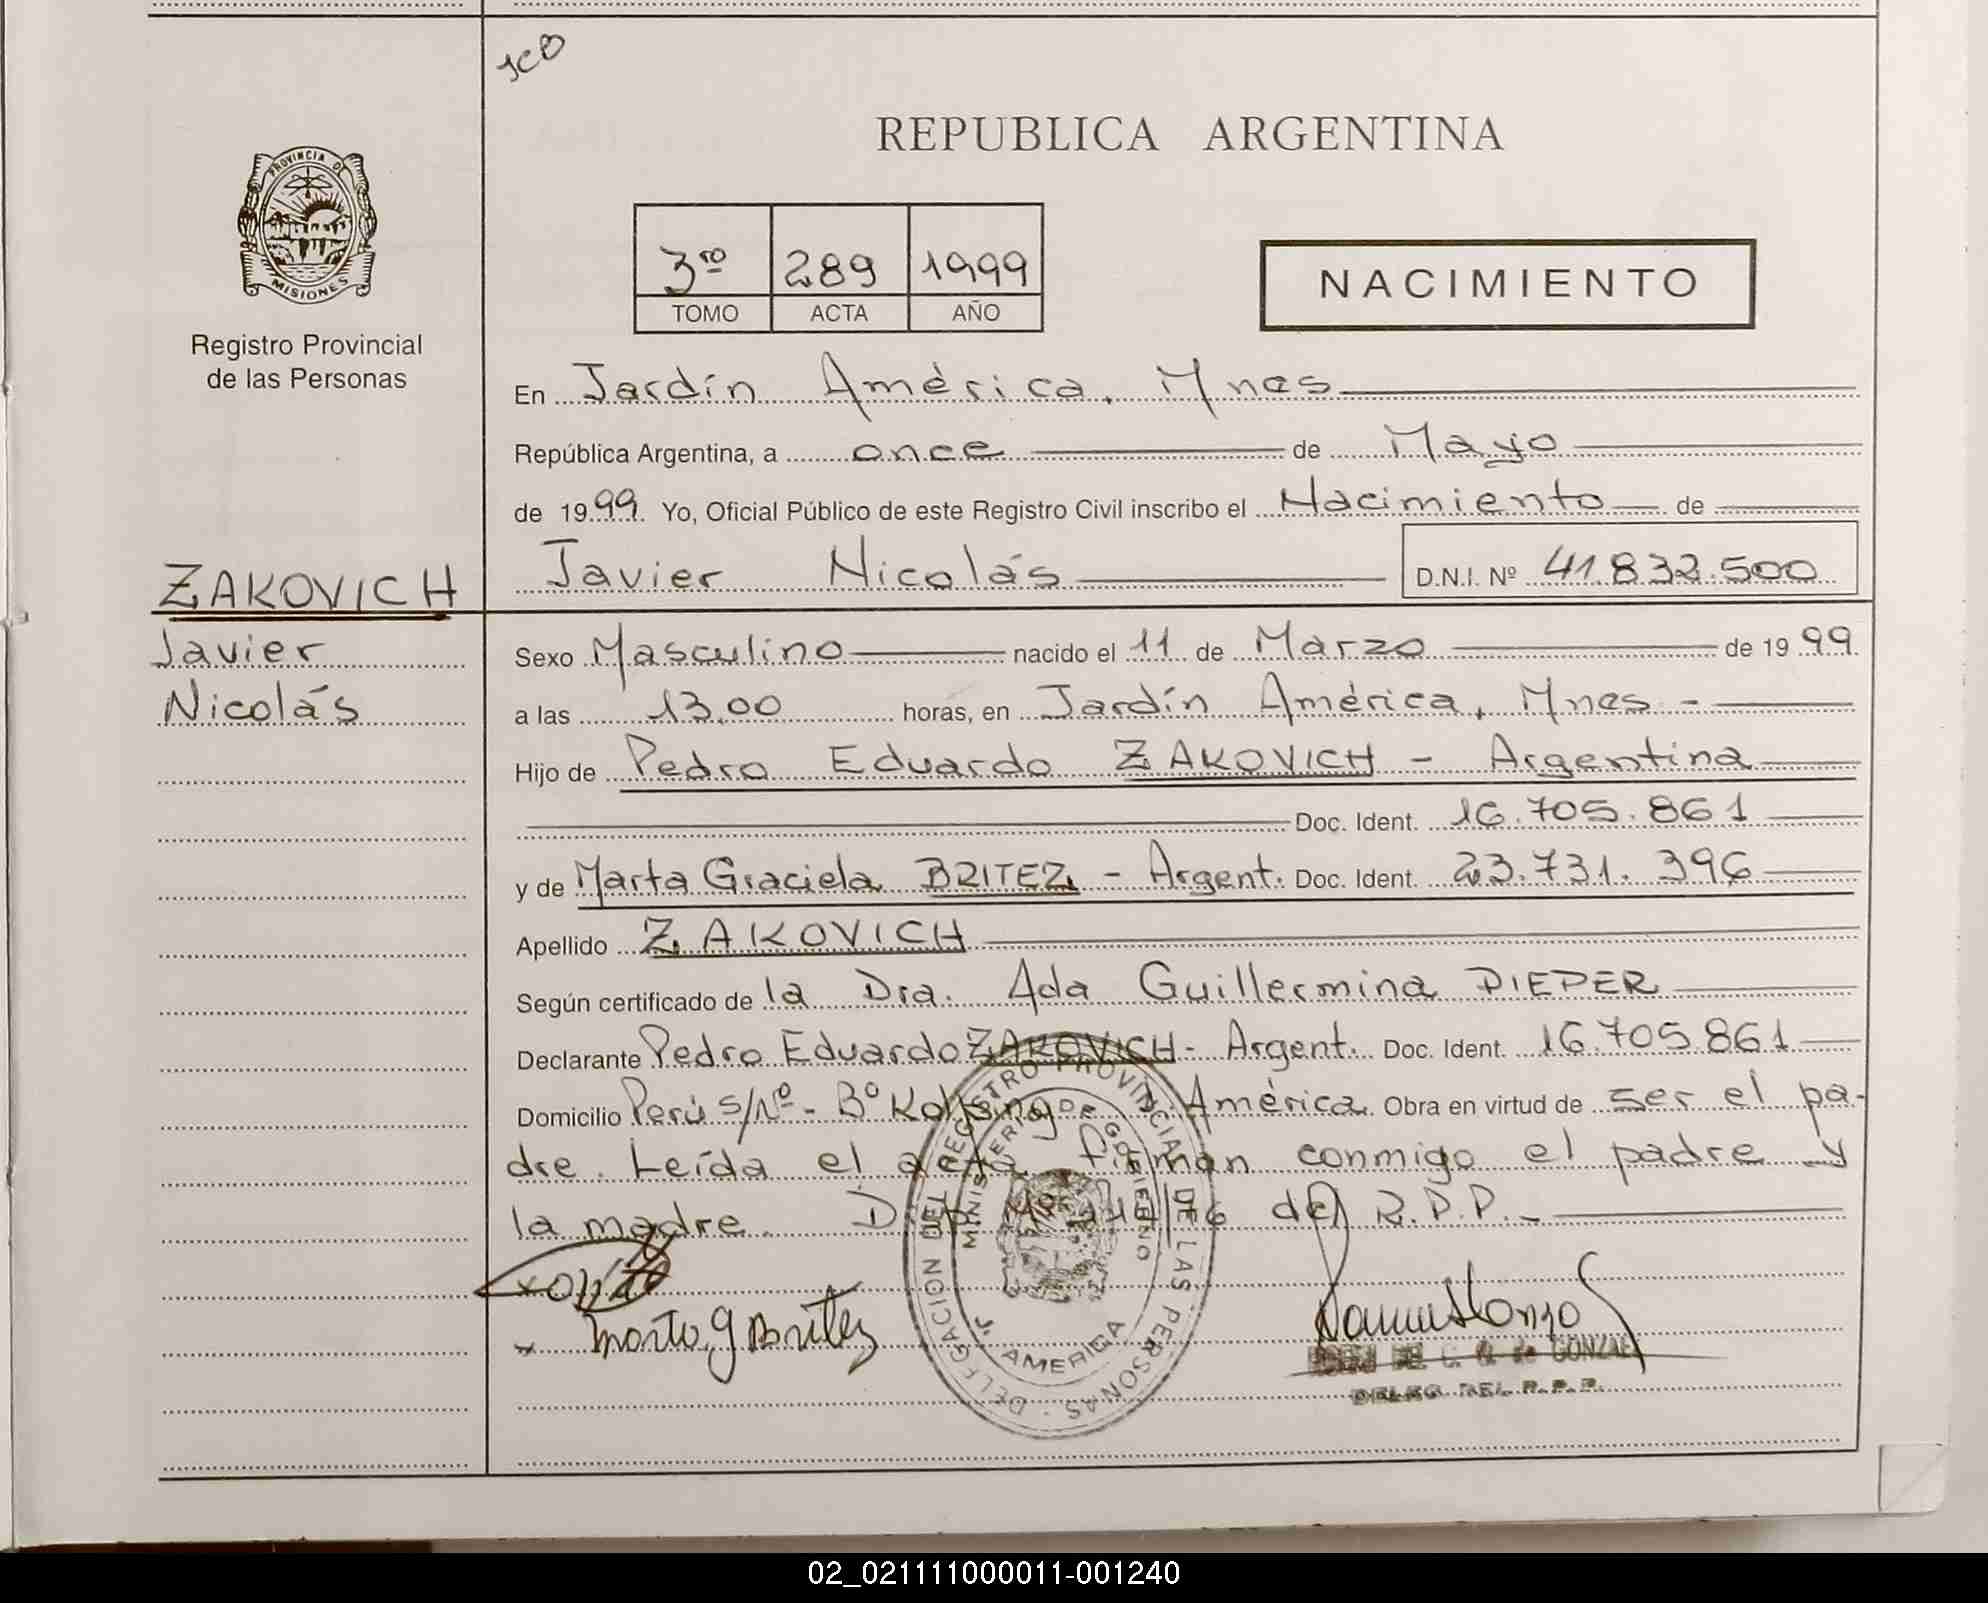 JCB
PROVINCIA D
MISIONES
Registro Provincial
de las Personas
REPUBLICA ARGENTINA
3ro 289 1999
TOMO ACTA AÑO
NACIMIENTO
En Jardín América, Mnes
República Argentina, a once de Mayo
de 1999. Yo, Oficial Público de este Registro Civil inscribo el Nacimiento de
Javier Nicolás D.N.I. Nº 41.832.500
ZAKOVICH
Javier
Nicolás
Sexo Masculino nacido el 11 de Marzo de 1999.
a las 13.00 horas, en Jardín América, Mnes -
Hijo de Pedro Eduardo ZAKOVICH - Argentina
Doc. Ident. 16.705.861
y de Marta Graciela BRITEZ - Argent. Doc. Ident. 23.731.396
Apellido ZAKOVICH
Según certificado de la Dra. Ada Guillermina DIEPER
Declarante Pedro Eduardo ZAKOVICH - Argent. Doc. Ident. 16.705.861
Domicilio Perú s/Nº - Bº J. América. Obra en virtud de ser el pa-
dre. Leída el acta firman conmigo el padre y
la madre. del R.P.P.-
Marta G Britez
DELEGACION DEL REGISTRO PROVINCIAL DE LAS PERSONAS
MINISTERIO DE GOBIERNO
J. AMERICA
de GONZALE
DELEG. DEL R.P.P.
02_021111000011-001240